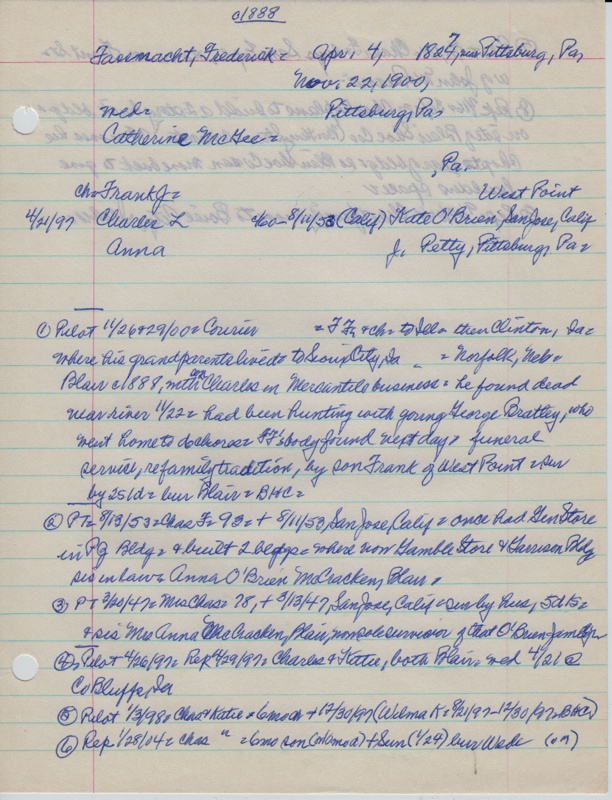 c1888
Fassnacht, Frederick = Apr. 4, 1824, near Pittsburg, Pa
Nov. 22, 1900,
med = Pittsburg, Pa
Catherine McGee =
, Pa.
ch = Frank J = West Point
4/21/97 Charles L c/60 - 8/11/53 (Calif) Kate O'Brien, San Jose, Calif
Anna J. Petty, Pittsburg, Pa =
① Pilot 11/26 & 29/00 = Courier = F Fr & ch = to Ill = then Clinton, Ia =
where his grandparents lived = to Sioux City, Ia " = Norfolk, Neb =
Blair c1888, with son Charles in Mercantile business = he found dead
near river 11/22 = had been hunting with young George Bratley, who
went home to do chores = FF's body found next day = funeral
service, re family tradition, by son Frank of West Point = sur
by 2s 1d = bur Blair = BHC =
② PT = 8/13/53 = Chas F = 93 = + 8/11/53, San Jose, Calif = once had Gen Store
in PG Bldg = & built 2 bldgs = where now Gamble Store & Garrison Bldg
sis in law = Anna O'Brien McCracken, Blair =
③ PT 3/20/47 = Mrs Chas = 78, + 3/13/47, San Jose, Calif = sur by hus, 5d 1s =
& sis Mrs Anna McCracken, Blair, now sole survivor of that O'Brien family =
④ Pilot 4/26/97 = Rep 4/29/97 = Charles & Katie, both Blair = wed 4/21 @
Co Bluffs, Ia
⑤ Pilot 1/3/98 = Chas & Katie = 6 mo ch + 12/30/97 (Wilma K = 8/2/97 - 12/30/97 = BHC)
⑥ Rep 1/28/04 = Chas " = 6 mo son + Sun (1/24) bur Wede